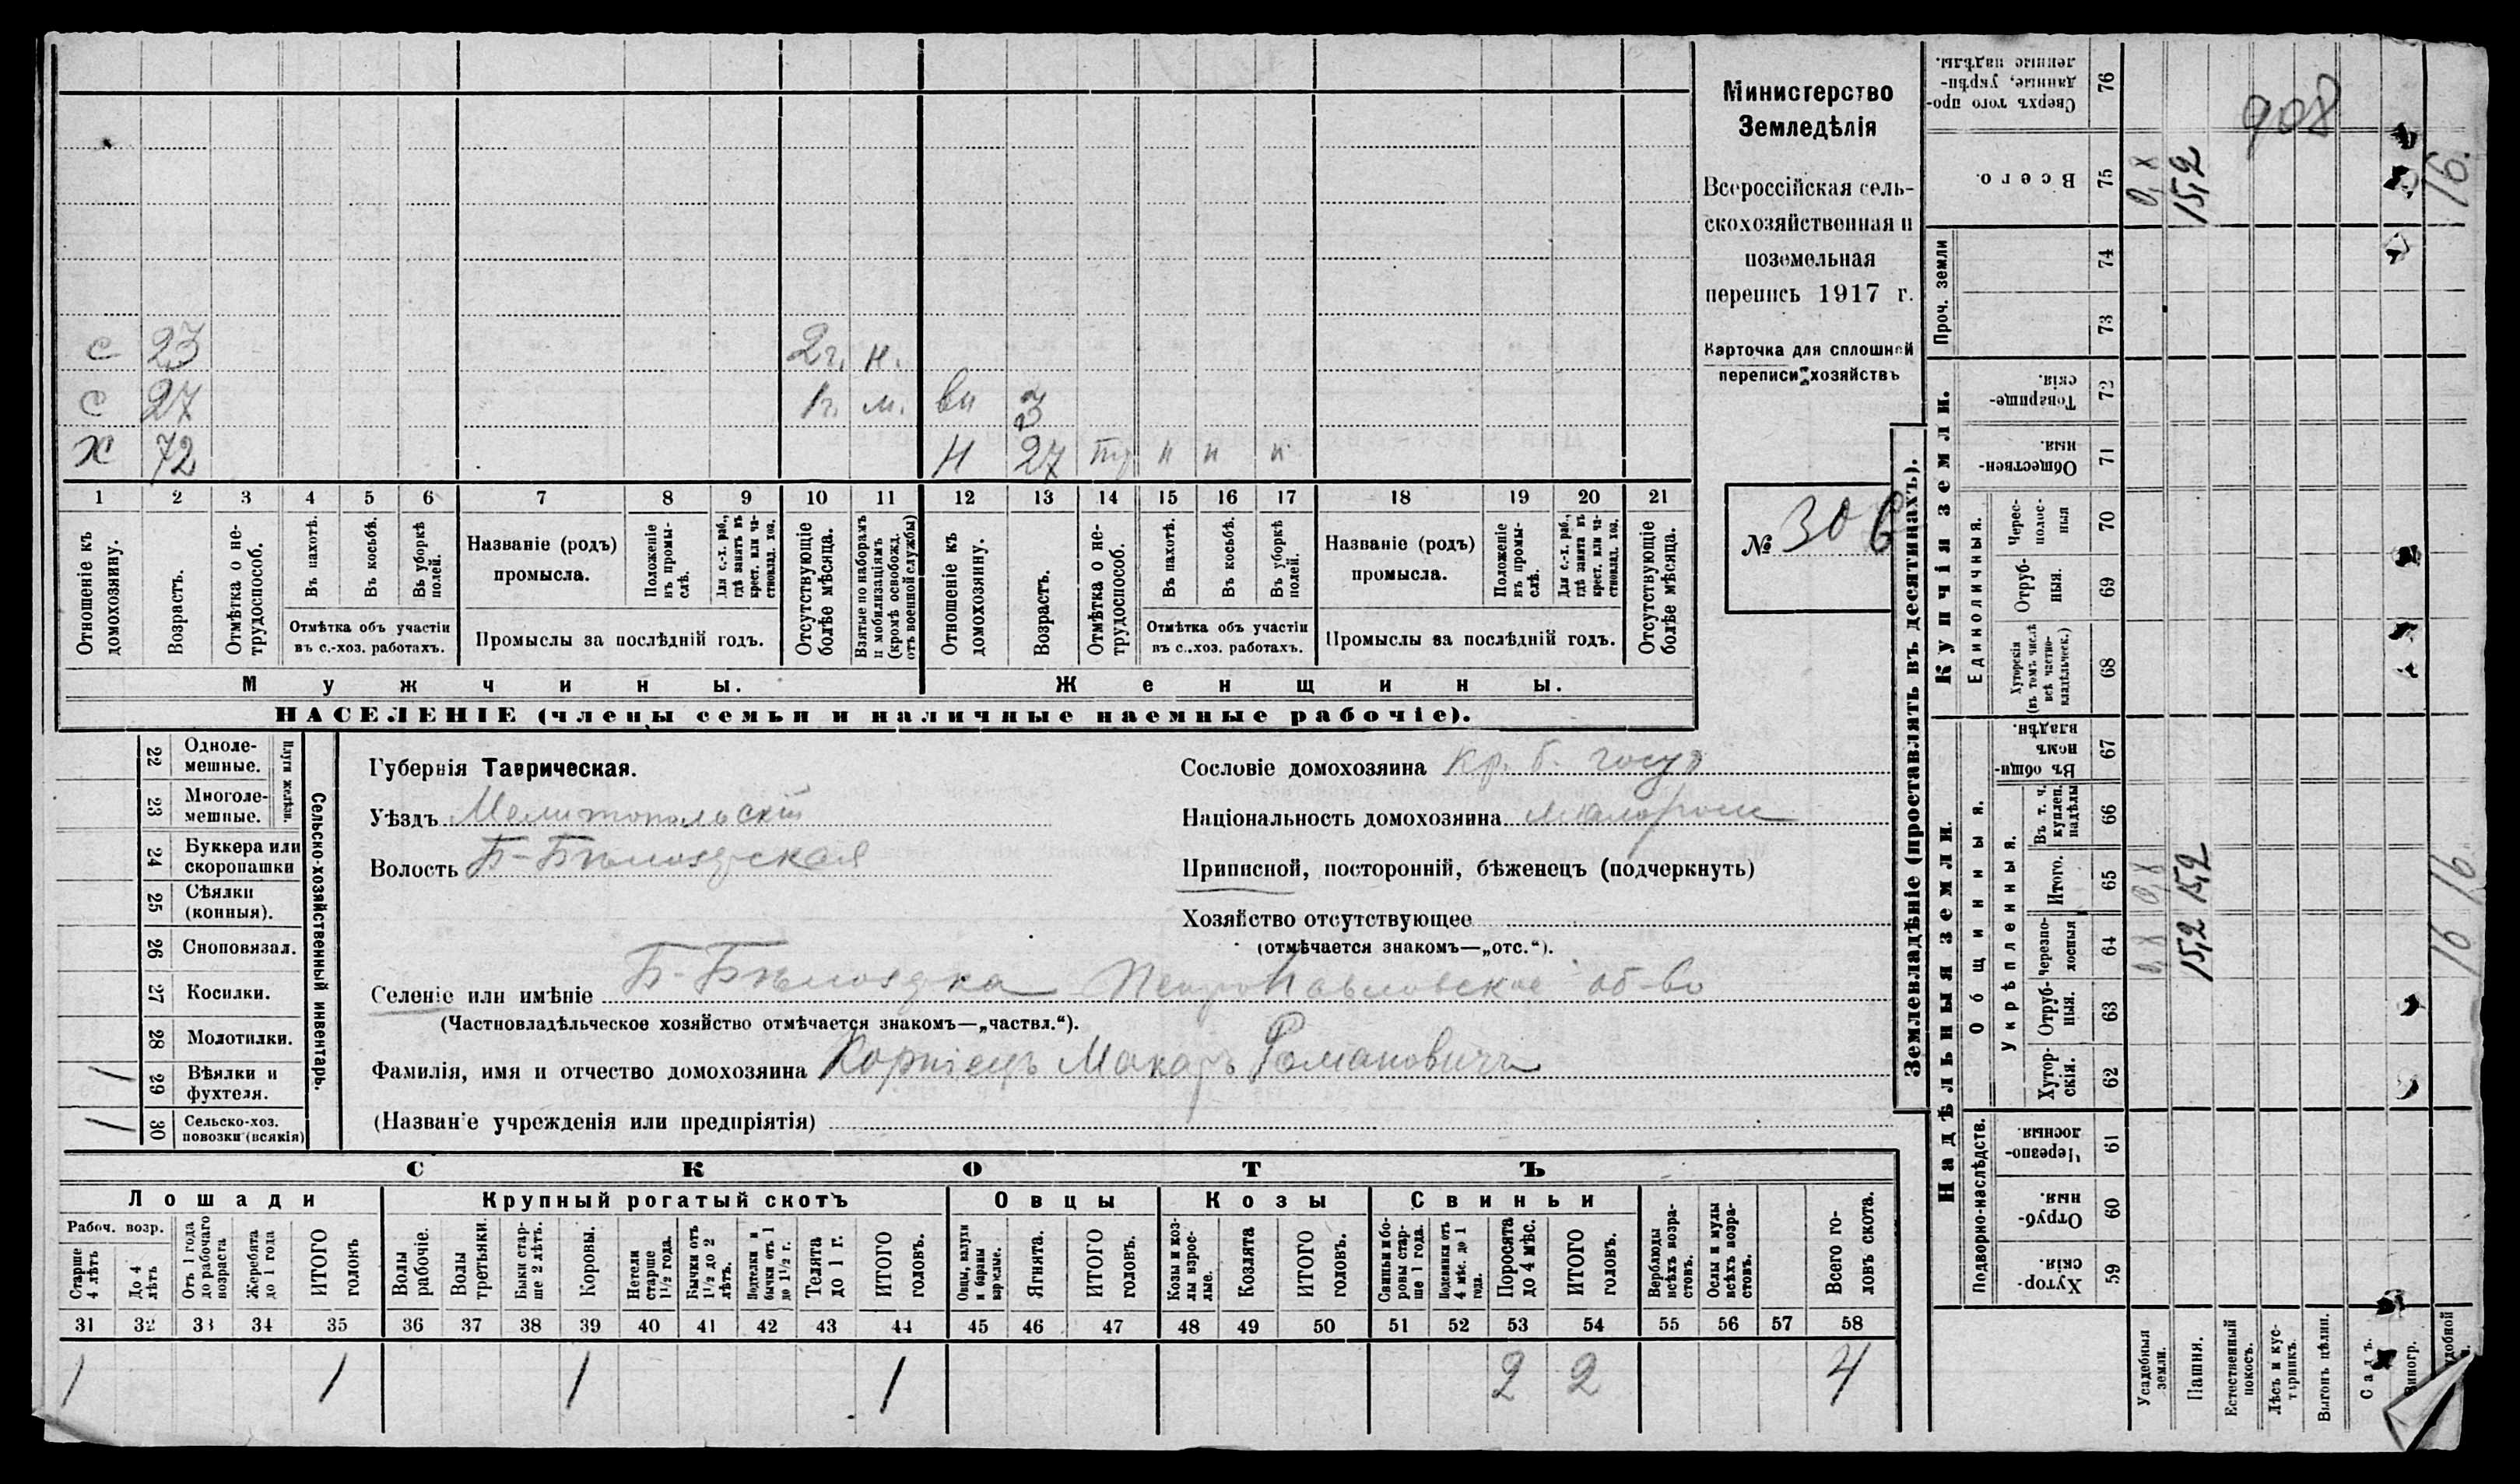 Министерство
Земледѣлія
Всероссійская сель-
скохозяйственная и
поземельная
перепись 1917 г.
Карточка для сплошной
переписи хозяйствъ
№ 30
с 23 2г. н.
с 27 1г. м. вн 3
х 72 н 27 тр п п п
1 2 3 4 5 6 7 8 9 10 11 12 13 14 15 16 17 18 19 20 21
Отношеніе къ домохозяину.
Возрастъ.
Отмѣтка о не-трудоспособ.
Въ пахотѣ.
Въ косьбѣ.
Въ уборкѣ полей.
Отмѣтка объ участіи
въ с.-хоз. работахъ.
Названіе (родъ)
промысла.
Положеніе въ промы-слѣ.
Для с.-х. раб., гдѣ занятъ въ крест. или ча-стновлад. хоз.
Промыслы за послѣдній годъ.
Отсутствующіе болѣе мѣсяца.
Взятые по наборамъ и мобилизаціямъ (кромѣ освобожд. отъ военной службы)
Отношеніе къ домохозяину.
Возрастъ.
Отмѣтка о не-трудоспособ.
Въ пахотѣ.
Въ косьбѣ.
Въ уборкѣ полей.
Отмѣтка объ участіи
въ с..хоз. работахъ.
Названіе (родъ)
промысла.
Положеніе въ промы-слѣ.
Для с.-х. раб., гдѣ занята въ крест. или ча-стновлад. хоз.
Промыслы за послѣдній годъ.
Отсутствующіе болѣе мѣсяца.
Мужчины. Женщины.
НАСЕЛЕНІЕ (члены семьи и наличные наемные рабочіе).
Сельско-хозяйственный инвентарь.
Плуги желѣзн.
22 Одноле-мешные.
23 Многоле-мешные.
24 Буккера или скоропашки
25 Сѣялки (конныя).
26 Сноповязал.
27 Косилки.
28 Молотилки.
1 29 Вѣялки и фухтеля.
1 30 Сельско-хоз. повозки (всякія)
Губернія Таврическая.
Уѣздъ Мелитопольскій
Волость Б-Бѣлозерская
Сословіе домохозяина кр. б. госуд
Національность домохозяина малоросс
Приписной, посторонній, бѣженецъ (подчеркнуть)
Хозяйство отсутствующее
(отмѣчается знакомъ—„отс.“).
Селеніе или имѣніе Б-Бѣлозерка Петропавловское об-во
(Частновладѣльческое хозяйство отмѣчается знакомъ—„частвл.“).
Фамилія, имя и отчество домохозяина Корніецъ Макаръ Романовичъ
(Названіе учрежденія или предпріятія)
СКОТЪ
Лошади Крупный рогатый скотъ Овцы Козы Свиньи
Рабоч. возр.
Старше 4 лѣтъ
До 4 лѣтъ
Отъ 1 года до рабочаго возраста
Жеребята до 1 года
ИТОГО головъ
Волы рабочіе.
Волы третьяки.
Быки стар-ше 2 лѣтъ.
Коровы.
Нетели старше 1½ года.
Бычки отъ 1½ до 2 лѣтъ.
Подтелки и бычки отъ 1 до 1½ г.
Телята до 1 г.
ИТОГО головъ.
Овцы, валухи и бараны взрослые.
Ягнята.
ИТОГО головъ.
Козы и коз-лы взрос-лые.
Козлята
ИТОГО головъ.
Свиньи и бо-ровы стар-ше 1 года.
Подсвинки отъ 4 мѣс. до 1 года.
Поросята до 4 мѣс.
ИТОГО головъ.
Верблюды всѣхъ возра-стовъ.
Ослы и мулы всѣхъ возра-стовъ.
Всего го-ловъ скота.
31 32 33 34 35 36 37 38 39 40 41 42 43 44 45 46 47 48 49 50 51 52 53 54 55 56 57 58
1 1 1 1 2 2 4
Землевладѣніе (проставлять въ десятинахъ).
Надѣльныя земли. Купчія земли. Проч. земли
Подворно-наслѣдств.
Общинныя.
Укрѣпленныя.
Единоличныя.
Хутор-скія. 59
Отруб-ныя. 60
Черезпо-лосныя. 61
Хутор-скія. 62
Отруб-ныя. 63
Черезпо-лосныя 64
Итого. 65
Въ т. ч. куплен. надѣлы 66
Въ общин-номъ владѣн. 67
Хуторскія (въ томъ числѣ всѣ частно-владѣльческ.) 68
Отруб-ныя. 69
Черес-полос-ныя 70
Обществен-ныя. 71
Товарище-скія. 72
73
74
Всего. 75
Сверхъ того про-данные, укрѣп-ленные надѣлы. 76
Усадебныя земли.
Пашня. 15,2 15,2 15,2
Естественный покосъ.
Лѣсъ и кус-тарникъ.
Выгонъ цѣлин.
Садъ.
Виногр.
удобной
16 16 16.
908